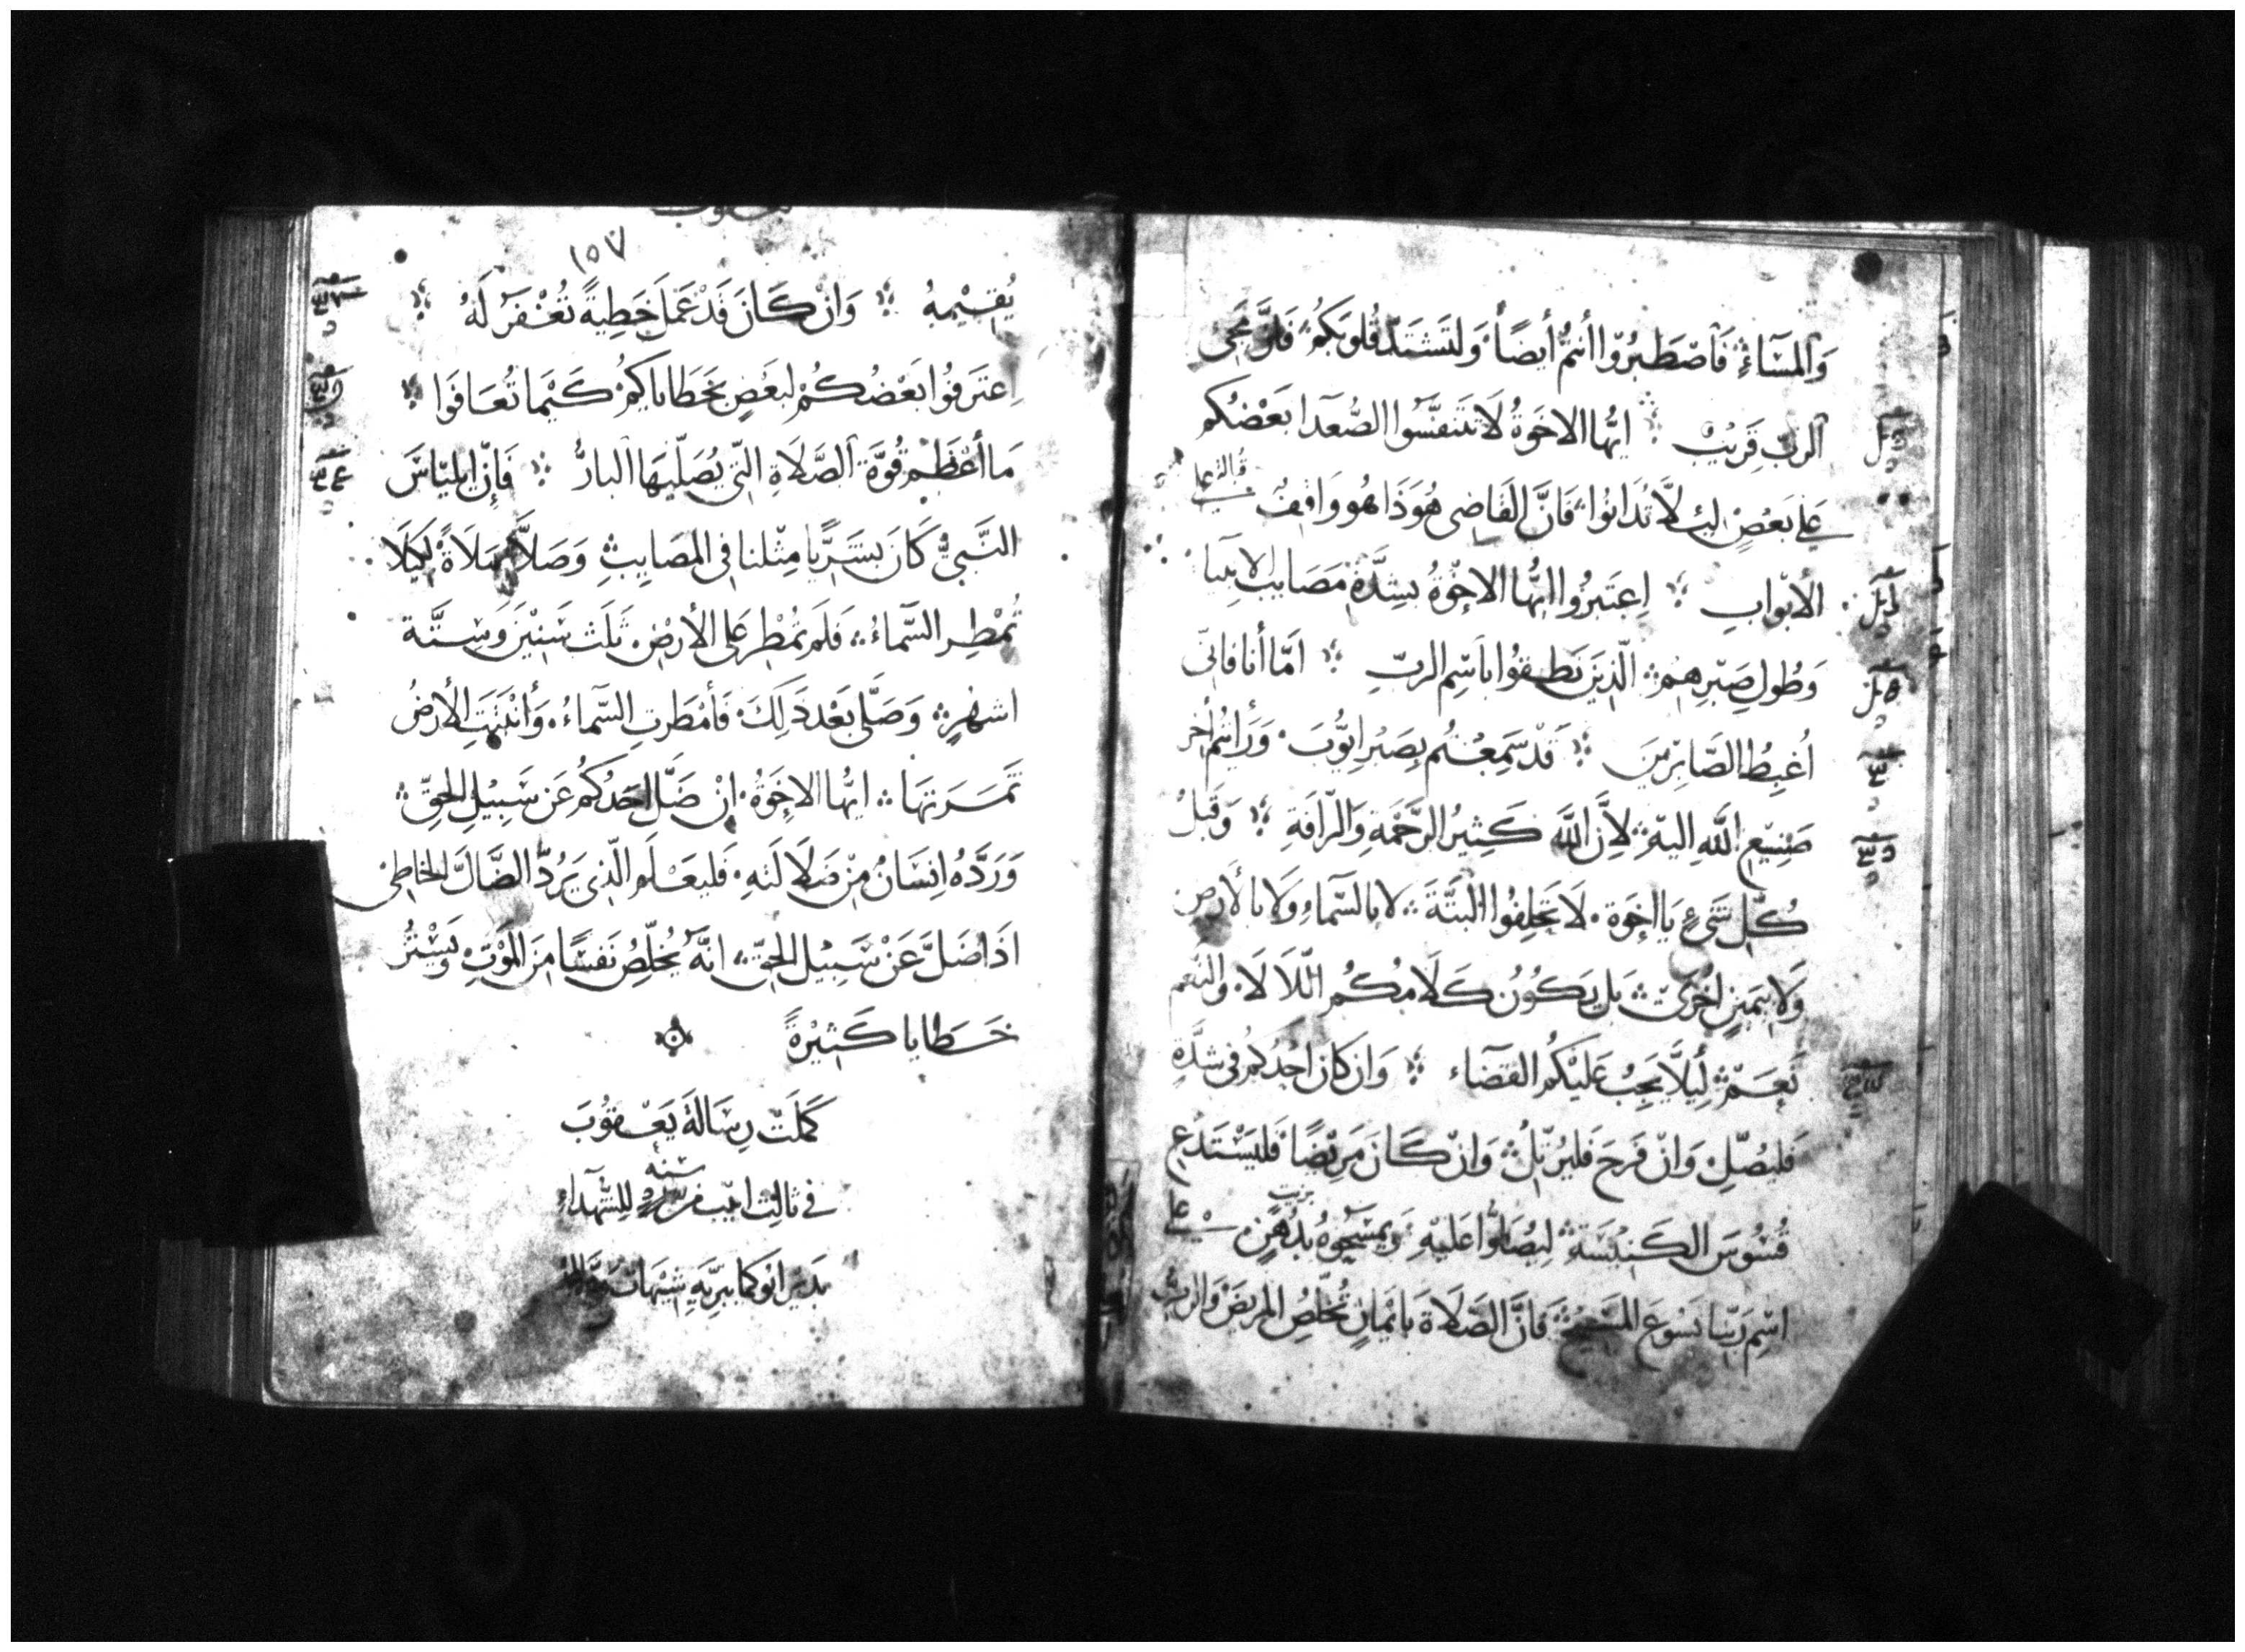 وَالمَسَآءَ فَاصْطَبِرُوا أنتُم أيضًا وَلتَشتَدّ قُلوبَكُم فَاِنَّ مَجِئ
الربّ قَرِيبٌ ايُّهَا الاخوَةُ لَا تَتَنَفَّسُوا الصُّعَدَا بَعْضُكُم
عَلى بَعْضٍ ليَلَّا تُدَانُوا فَانَّ القَاضِى هُوَذَا هُو وَاقِفٌ
على
الأبوَابِ اِعتَبِرُوا ايُّهَا الاخْوَةُ بِشِدَّةِ مَصَايِبِ الانبِيَا
وَطُولِ صَبْرِهِم الّذِينَ نَطَقُوا بِاسْمِ الربِّ امَّا أنا فَانّى
اُغبِطُ الصَّابِرِينَ قَدْ سَمِعْتُم بِصَبْرِ ايُّوبَ وَرَأيتُم اُخَر
صَنِيعِ اللَّهِ اليهِ لِأنَّ اللَّه كَثِيرُ الرَّحْمَةِ وَالرّافَةِ وَقَبلَ
كُلِّ شَىءٍ يَا اخوَة لَا تَحلِفُوا البَتَّةَ لا بالسَّمَاءِ وَلا بالأرضِ
وَلا بيَمِينٍ اُخرَى بَل يَكُونُ كَلَامُكُم اللّا لَا والنَعَم
نَعَم لِيَلَّا يَجِبُ عَلَيْكُم القَضَاء وَان كَانَ احَدُكُم فى شِدَّةٍ
فَليُصَلِّ وَانْ فَرِحَ فَليُرَتِّل وَانْ كَانَ مَرِيْضًا فَليَسْتَدعِ
بزيت
قُسُوسَ الكَنِيسَةِ لِيُصَلُّوا عَلَيْهِ وَيمسَحُوهُ بِدُهنٍ على
اسْمِ رَبِّنا يَسُوعَ المَسِيْحِ فَانَّ الصَّلَاةَ بايْمَانٍ تُخَلِّصُ المَريضَ وَالربُّ
١٥٧
يُقِيْمهُ وَانْ كَانَ قَدْ عَمَلَ خَطِيةً تُغْفَرُ لَهُ
اِعتَرفُوا بَعْضُكُمْ لبَعْضٍ بخَطَايَاكُم كَيْمَا تُعَافَوا
مَا أعْظَمَ قُوَّةَ الصَّلَاةِ التّى يُصَلّيهَا البارُّ فَاِنّ ايليّاسَ
النَّبىُّ كَانَ بشَرِيًّا مِثْلنا فى المصَايِبِ وَصَلَّا صَلَاةً لِكَيلَا
تُمْطِر السَّمآءُ فَلَم تُمْطِر عَلى الأرضِ ثَلَثَ سَنِيْنَ وَستَّة
اشهُرٍ وَصَلَّى بَعْدَ ذَلِكَ فَأمْطَرتِ السَّمآءُ وَأنْبَتَتِ الأرضُ
ثَمَرَتهَا ايُّها الاخوَةُ انْ ضَلَّ احَدُكُم عَن سَبِيْلِ الحقِّ
وَرَدَّهُ انِسَانٌ مِنْ ضَلَالَتهِ فَليَعْلَم الّذِى يَرُدُّ الضَّالَّ الخاطِئ
اذَا ضَلَّ عَنْ سَبِيْلِ الحقّ انَّه يُخلِّصُ نَفسًا مِنَ المَوْتِ وَيَسْتُرُ
خَطَايا كَثِيْرَةً
كَمَلَتْ رِسَالَة يَعْقُوبَ
سنه
فى ثالِث ابيب للشّهدآءِ
بَديَر ابُو